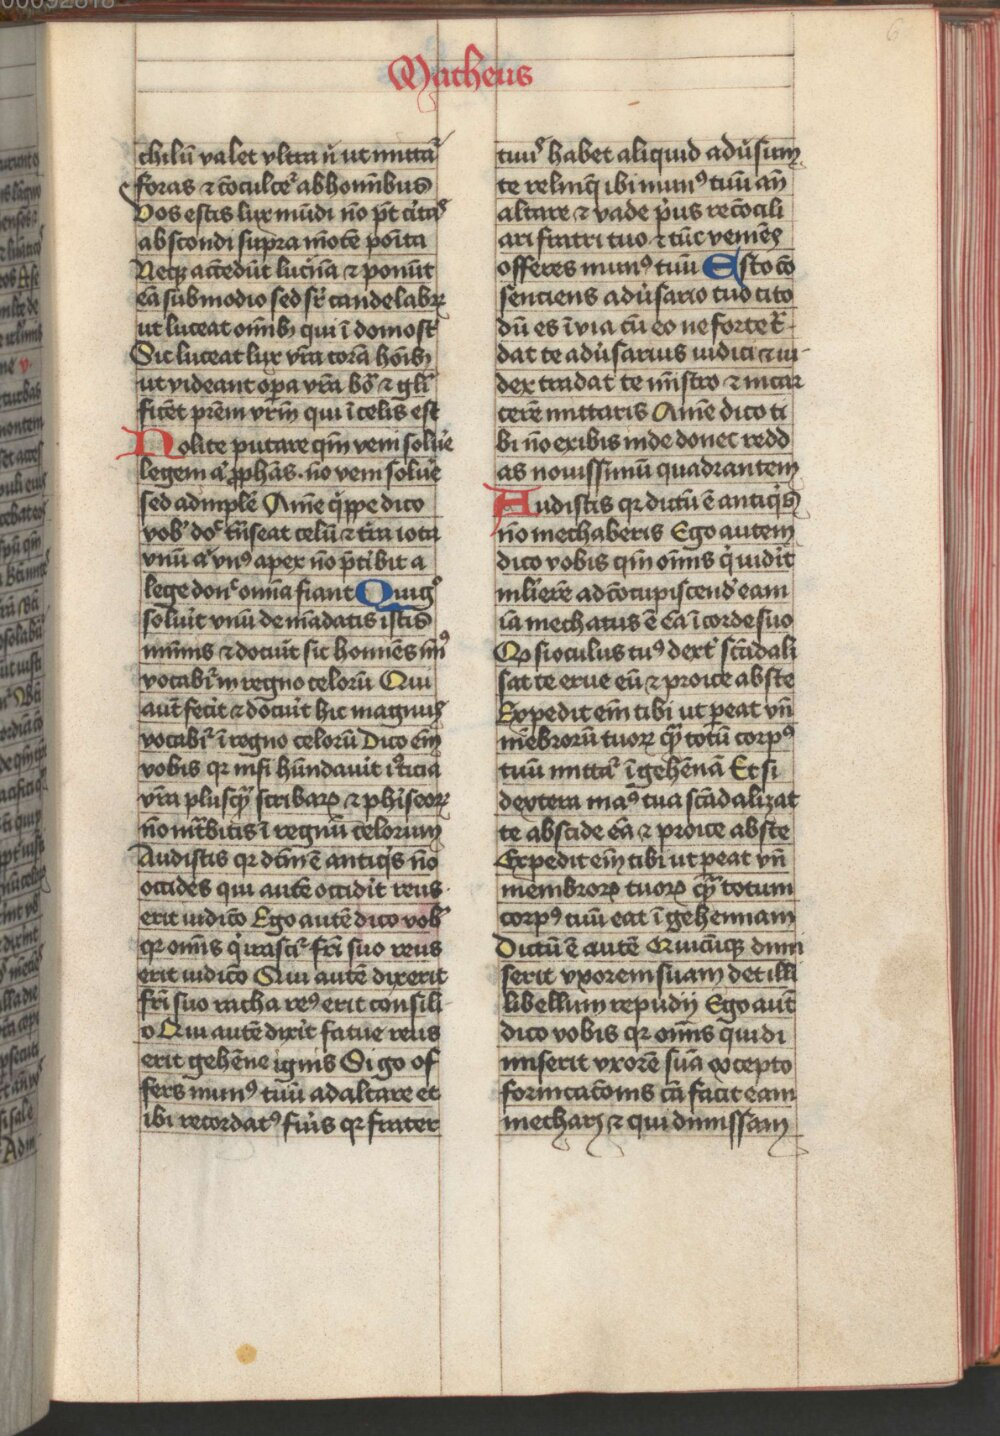 Matheus
chilū valet vltra ñ ut mittat᷑
foras ⁊ cōculcet᷑ ab hominibus
Vos estis lux mūdi nō pt̄ cītas
abscondi supra mōtē posita
Neq; accēdūt lucīnā ⁊ ponūt
eā sub modio sed sr̄ candelabꝝ
ut luceat omīb; qui ī domo st̄
Sic luceat lux vr̄a corā hōīb;
ut videant oꝑa vr̄a bōa ⁊ glī
ficēt prēm vrm̄ qui ī celis est
Nolite putare qm̄ veni solūe
legem aͭ ꝓphās· nō veni solūe
sed adimplē Amē qͥppe dico
vob̓ doͨ tn̄seat celū ⁊ tr̄a iota
vnū aͭ vnꝰ apex nō pt̄ibit a
lege donͨ omīa fiant Quigͦ
soluit vnū de mādatis istis
minīs ⁊ docuīt sic homīes mīꝰ
vocabit᷑ in regno celorū Qui
aut̄ fecit ⁊ docuīt hic magnꝰ
vocabit᷑ ī regno celorū Dico eīm
vobis qꝛ nisi hūndauit iꝰticia
vr̄a plusqͣ scribaꝝ ⁊ phīseoꝝ
nō īntrbitis ī regnū celorum
Audistis qꝛ dcm̄ ē antiqͥs nō
occides qui autē occidīt reus
erit iudicō Ego autē dico vob̓
qꝛ omīs qͥ irascit᷑ fr̄i suo reus
erit iudicō Qui autē dixerit
fr̄i suo racha reꝰ erit consili
o Qui autē dixīt fatue reus
erit gehēne ignis Si gͦ of
fers munꝰ tuū ad altare et
ibi recordatꝰ fūis qꝛ frater
tuuˢ habet aliquid adūsum
te relinqͥ ibi munꝰ tuū an̄
altare ⁊ vade pͥus recōcili
ari fratri tuo ⁊ tūc veniēs
offeres munꝰ tuū Esto cō
senciens adūsario tuo cito
dū es ī via cū eo ne forte tͣ-
dat te adūsarius iudici ⁊ iu-
dex tradat te mīstro ⁊ in car
cerē mittaris Amē dico ti
bi nō exibis inde donec redd
as nouissimū quadrantem
Audistis qꝛ dictū ē antiqͥs
nō mechaberis Ego autem
dico vobis qm̄ omīs qͥ uidīt
mlīerē ad cōcupiscend̓ eam
iā mechatus ē eā ī corde suo
Qp si oculus tuꝰ dext᷑ scādali
sat te erue eū ⁊ proice abs te
Expedit eīm tibi ut peat vn̄
mēbrorū tuoꝝ qͣ totū corpꝰ
tuū mittat᷑ ī gehēnā Et si
dextera maꝰ tua scādalizat
te abscide eā ⁊ proice abs te
Expedit eīm tibi ut peat vn̄
membroꝝ tuoꝝ qͣ totum
corpꝰ tuū eat ī gehennam
Dictū ē autē Quicūq; dimi
serit vxorem suam det illi
libellum repudij Ego aut̄
dico vobis qꝛ omīs qui di
miserit vxorē suā excepto
fornicacōnis cā facit eam
mechari ⁊ qui dimissam